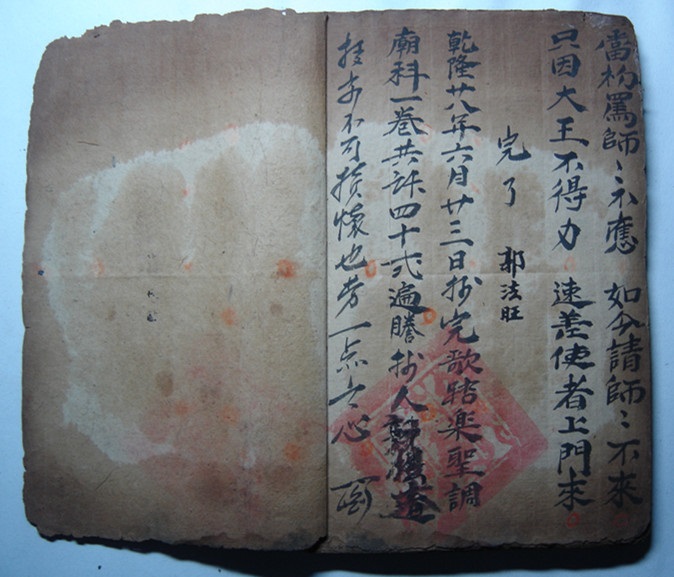 當初罵師〻不應 如今請師〻不來
只因大王不得力 速差使者上門來
完了 郭法旺
乾隆廿八年六月廿三日抄完歌唱楽聖調
廟科一卷共計四十弍遍謄抄人
不可損懷也劳一点心